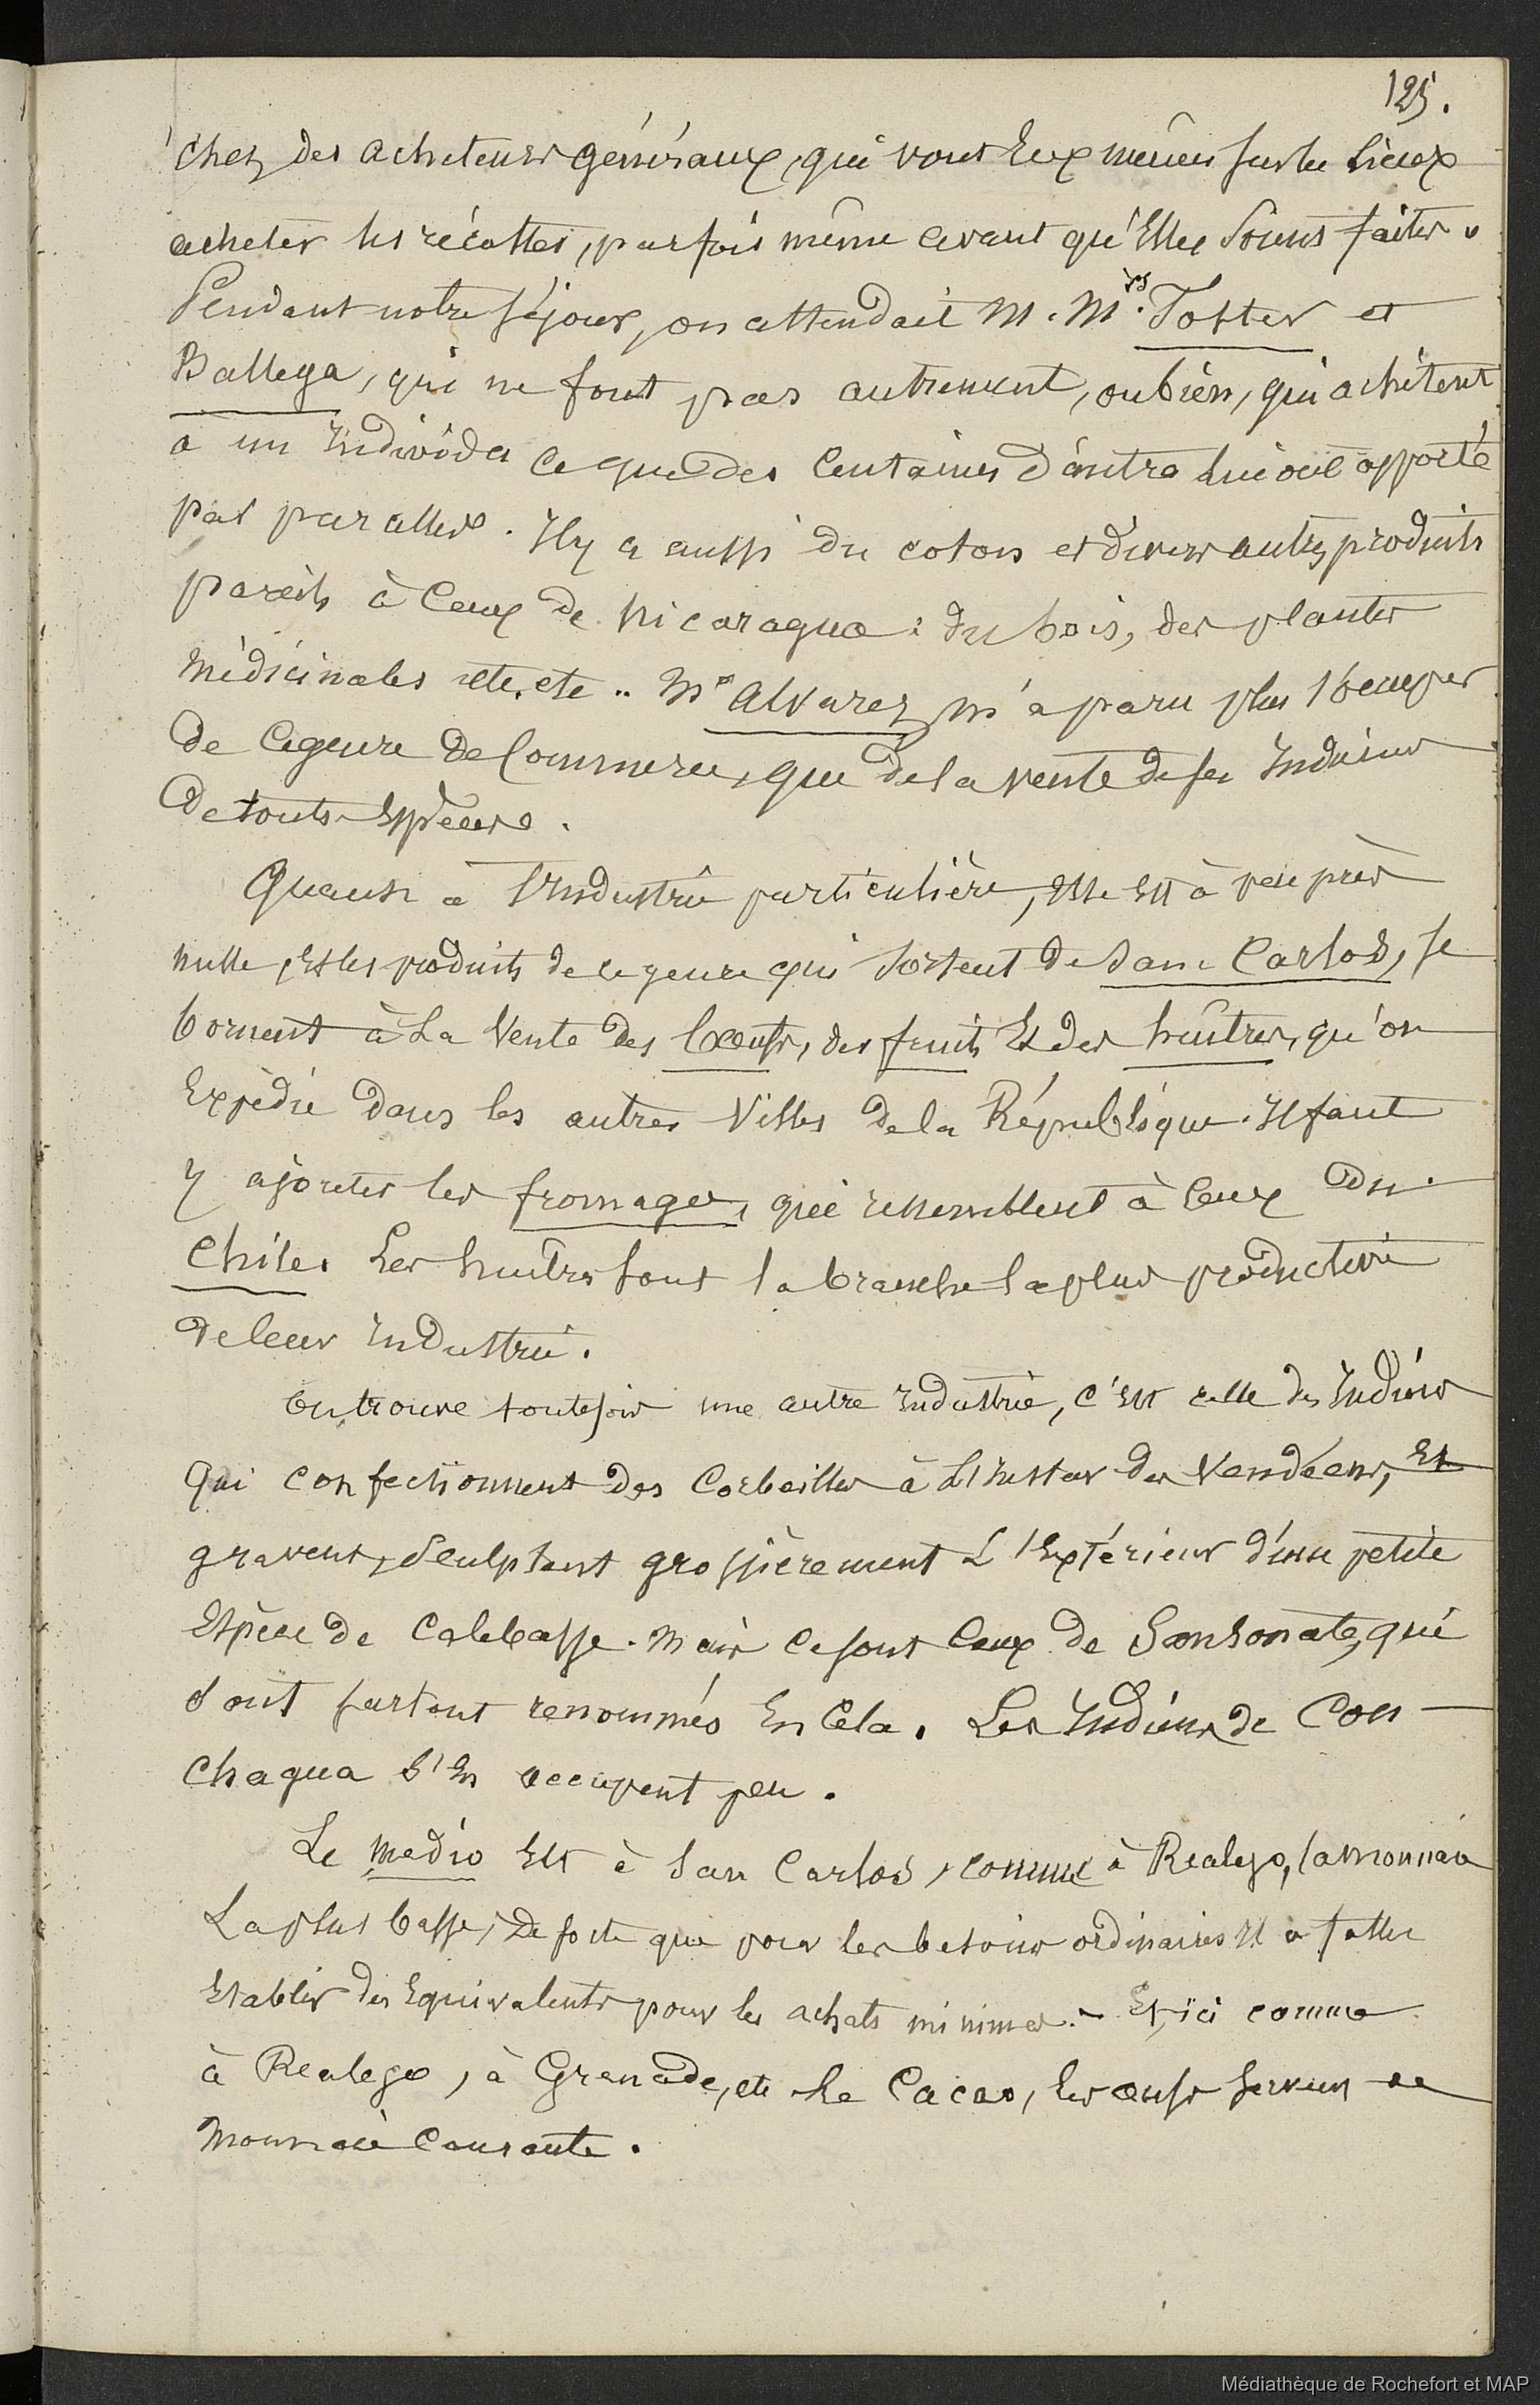 125.
chez des acheteurs généraux, qui vont Eux mêmes sur les lieux
acheter les récoltes, parfois même avant qu'Elles soient faites.
Pendant notre séjour, on attendait M. Mrs. Foster et
Ballega, qui ne font pas autrement, ou bien, qui achètent
à un Individu ce que des centaines d'autres lui ont apporté
par parcelles. Il y a aussi du coton et divers autres produits
pareils à ceux de Nicaragua : du bois, des plantes
médicinales etc. etc .. Mr Alvarez m'a paru plus s'occuper
de ce genre de Commerce, que de la vente de ses Indiens
de toutes Espèces.
Quant à l'Industrie particulière, elle Est à peu près
nulle, Et les produits de ce genre qui sortent de San Carlos, se
bornent à La Vente des bœufs, des fruits Et des huîtres, qu'on
Expédie dans les autres Villes de la République. Il faut
y ajouter les fromages, qui ressemblent à ceux du
Chile. Les huîtres sont la branche la plus productive
de leur Industrie.
On trouve toutefois une autre Industrie, c'Est celle des Indiens
qui confectionnent des Corbeilles à L'Instar des Vendéens, Et
gravent, sculptent grossièrement L'Extérieur d'une petite
Espèce de Calebasse. Mais ce sont ceux de Sonsonate, qui
sont surtout renommés En Cela. Les Indiens de Con-
chagua s'En occupent peu.
Le medio Est à San Carlos, comme à Realejo, la monnaie
La plus basse, De sorte que pour les besoins ordinaires Il a fallu
Etablir des Equivalents pour les achats minimes. - Et, ici comme
à Realejo, à Grenade, etc le Cacao, les œufs servent de
Monnaie Courante.
Médiathèque de Rochefort et MAP